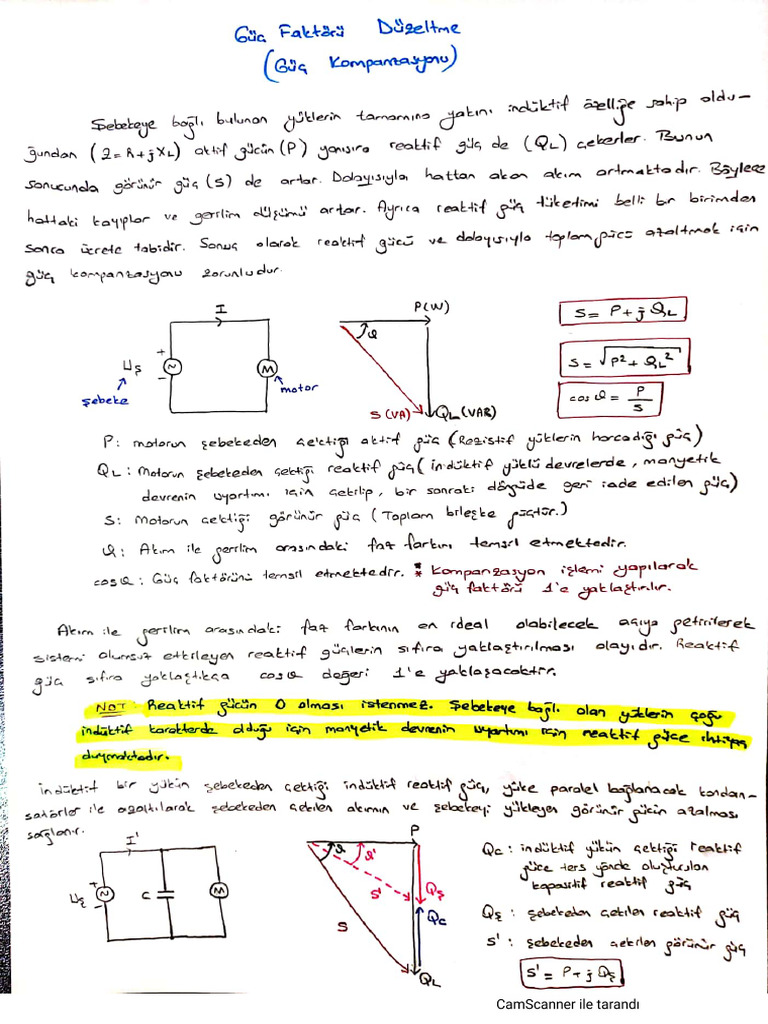 Güç Faktörü Düzeltme
(Güç Kompanzasyonu)
Şebekeye bağlı bulunan yüklerin tamamına yakını indüktif özelliğe sahip oldu-
ğundan (Z=R+jXL) aktif gücün (P) yanısıra reaktif güç de (QL) çekerler. Bunun
sonucunda görünür güç (S) de artar. Dolayısıyla hattan akan akım artmaktadır. Böylece
hattaki kayıplar ve gerilim düşümü artar. Ayrıca reaktif güç tüketimi belli bir birimden
sonra ücrete tabidir. Sonuç olarak reaktif gücü ve dolayısıyla toplam gücü azaltmak için
güç kompanzasyonu zorunludur.
I
+
-
Uş
şebeke
M
motor
P(W)
φ
S(VA)
QL(VAR)
S = P + j QL
S = √P² + QL²
cos φ = P/S
P: motorun şebekeden çektiği aktif güç (Rezistif yüklerin harcadığı güç)
QL: Motorun şebekeden çektiği reaktif güç (indüktif yüklü devrelerde, manyetik
devrenin uyartımı için çekilip, bir sonraki döngüde geri iade edilen güç)
S: Motorun çektiği görünür güç (Toplam bileşke güçtür.)
φ: Akım ile gerilim arasındaki faz farkını temsil etmektedir.
cosφ: Güç faktörünü temsil etmektedir. * Kompanzasyon işlemi yapılarak
* güç faktörü 1'e yaklaştırılır.
Akım ile gerilim arasındaki faz farkının en ideal olabilecek açıya getirilerek
sistemi olumsuz etkileyen reaktif güçlerin sıfıra yaklaştırılması olayıdır. Reaktif
güç sıfıra yaklaştıkça cosφ değeri 1'e yaklaşacaktır.
NOT: Reaktif gücün 0 olması istenmez. Şebekeye bağlı olan yüklerin çoğu
indüktif karakterde olduğu için manyetik devrenin uyartımı için reaktif güce ihtiyaç
duymaktadır.
İndüktif bir yükün şebekeden çektiği indüktif reaktif güç, yüke paralel bağlanacak kondan-
satörler ile azaltılarak şebekeden çekilen akımın ve şebekeyi yükleyen görünür gücün azalması
sağlanır.
I'
+
-
Uş
C
M
P
φ
φ'
S'
S
Qş
QC
QL
QC: indüktif yükün çektiği reaktif
güce ters yönde oluşturulan
kapasitif reaktif güç
Qş: şebekeden çekilen reaktif güç
S': şebekeden çekilen görünür güç
S' = P + j Qş
CamScanner ile tarandı